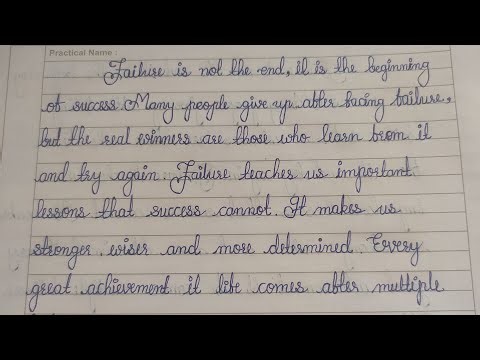 Practical Name :
Failure is not the end, it is the beginning
of success. Many people give up after facing failure,
but the real winners are those who learn from it
and try again. Failure teaches us important
lessons that success cannot. It makes us
stronger wiser and more determined. Every
great achievement it life comes after multiple